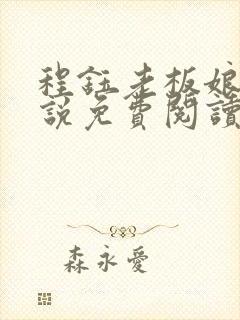 程鈺老板娘
說免費閱讀
森永愛